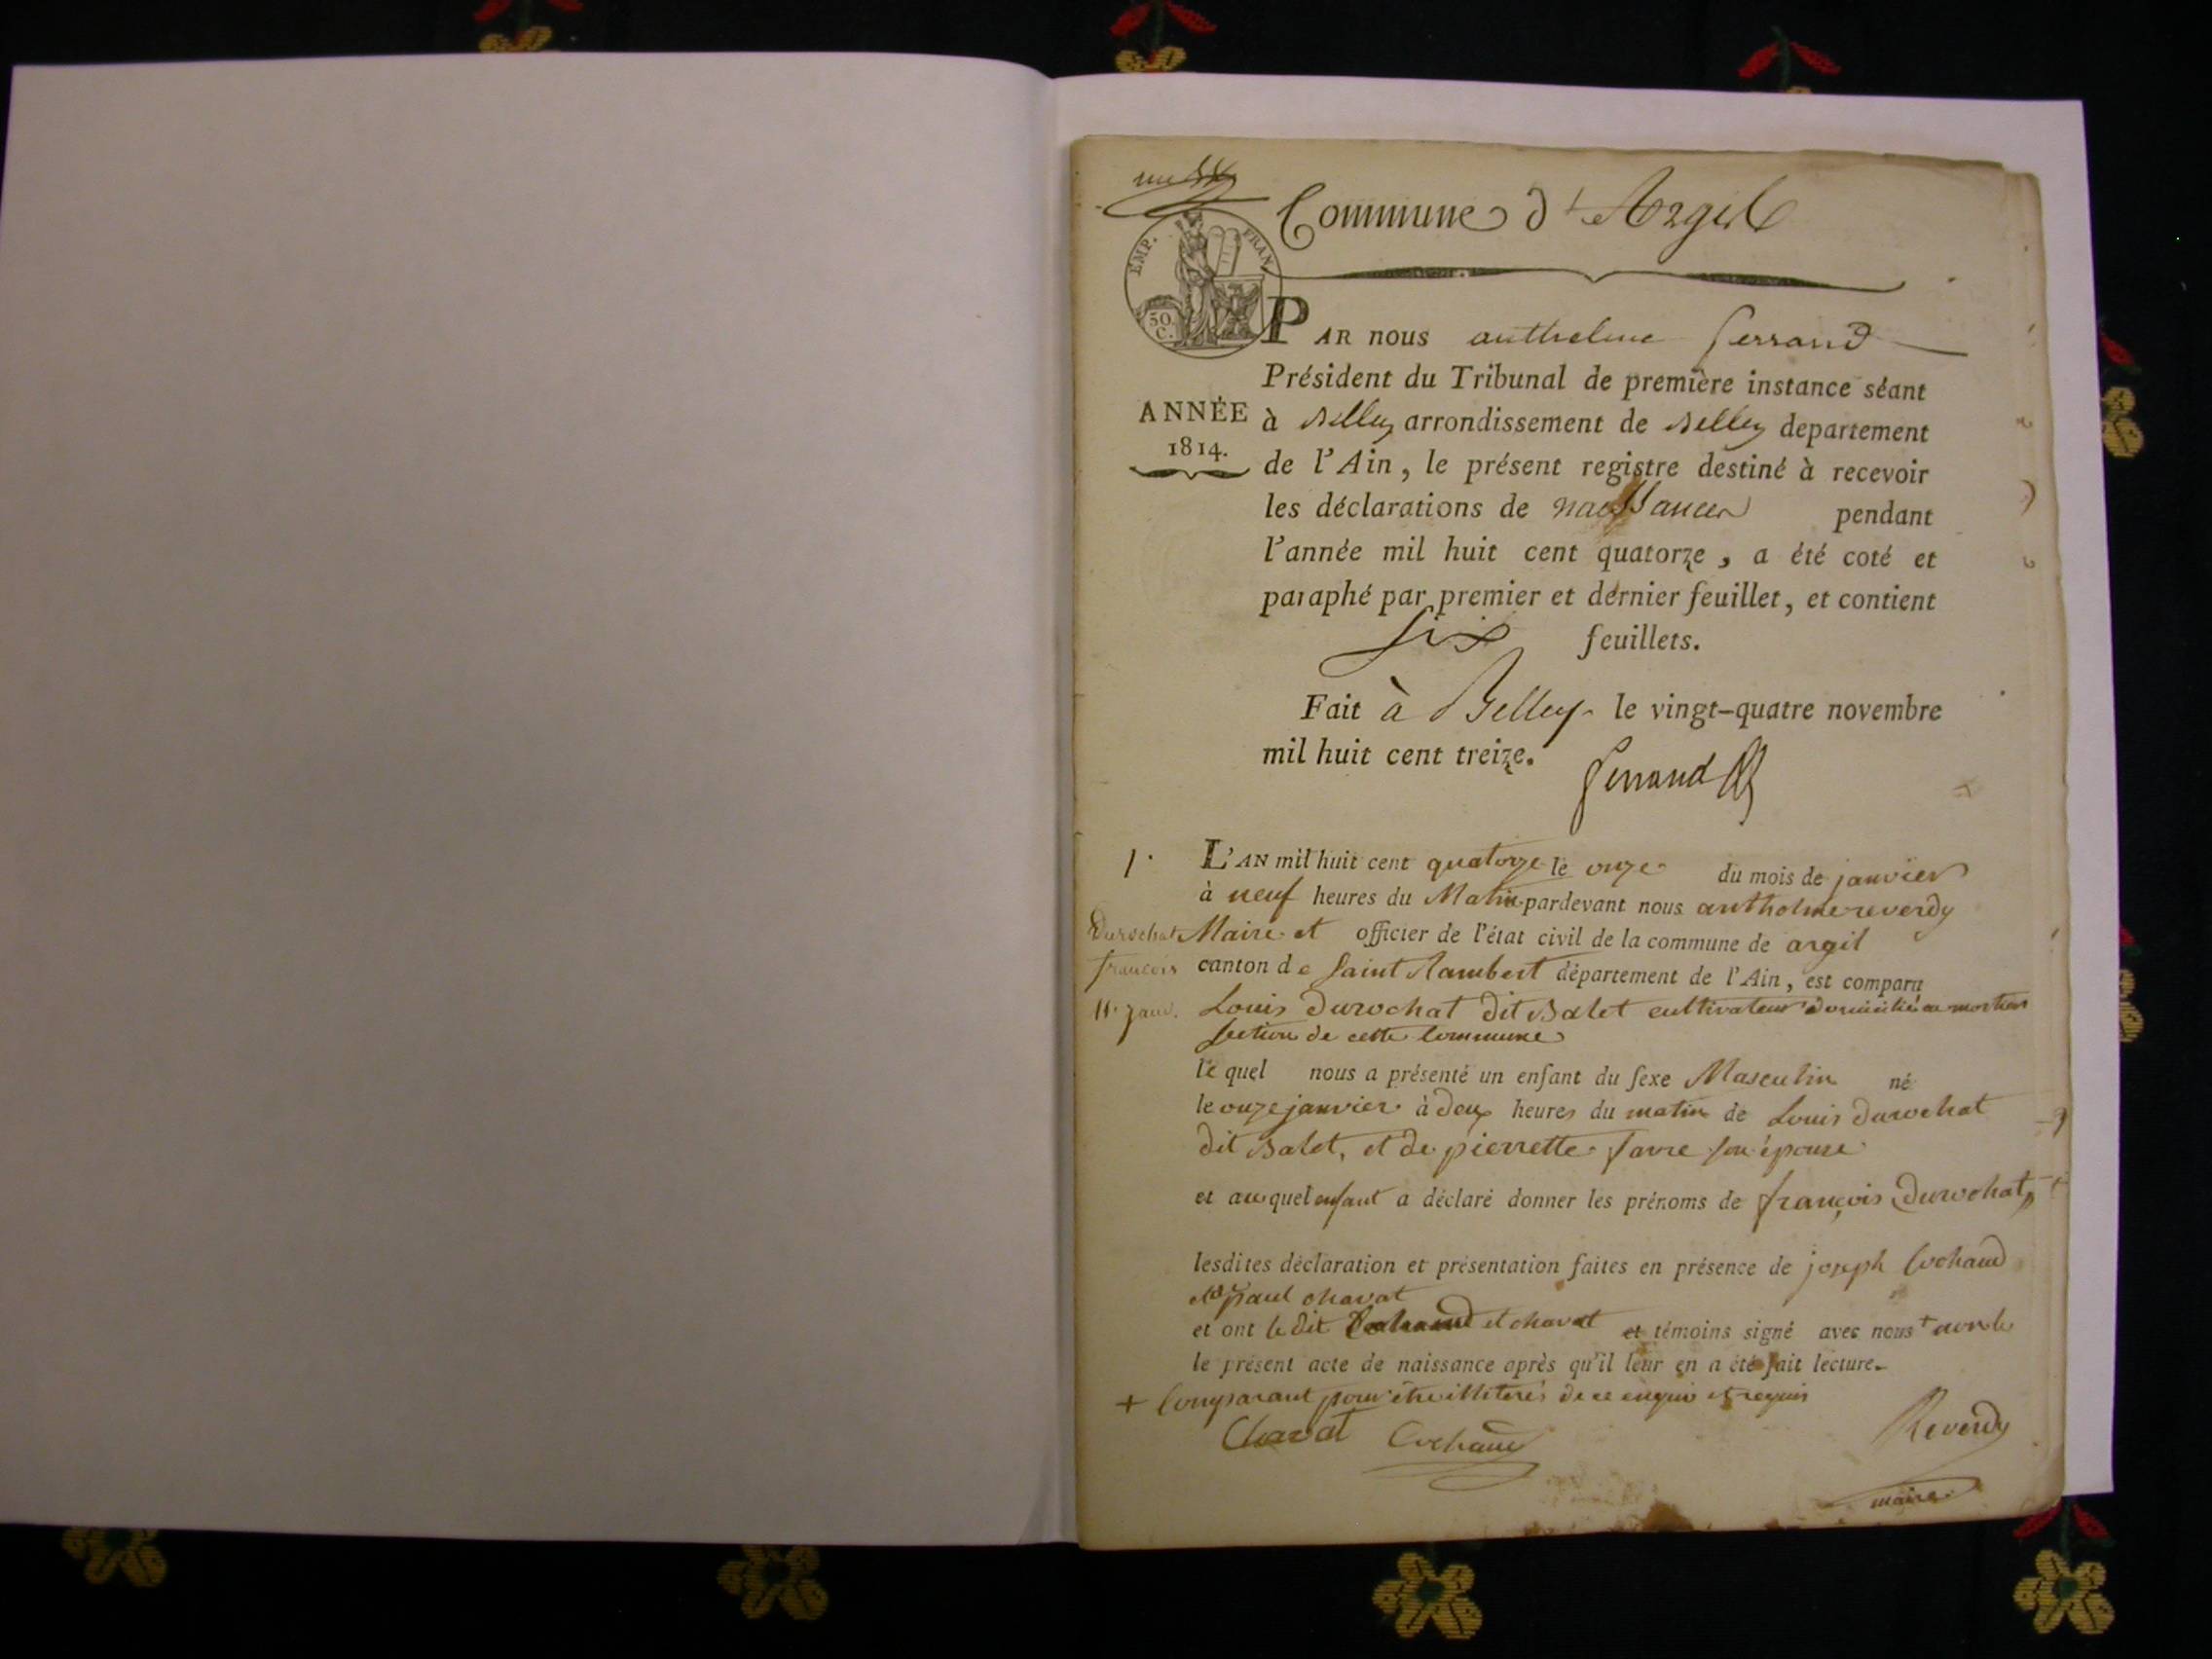 Commune d'Argil
EMP. FRAN.
50 C.
PAR nous anthelme ferrand
Président du Tribunal de première instance séant
ANNÉE
1814.
à Belley arrondissement de Belley departement
de l'Ain, le présent registre destiné à recevoir
les déclarations de naissances pendant
l'année mil huit cent quatorze, a été coté et
paraphé par premier et dernier feuillet, et contient
six feuillets.
Fait à Belley le vingt-quatre novembre
mil huit cent treize.
ferrand
1.
L'AN mil huit cent quatorze le onze du mois de janvier
à neuf heures du Matin pardevant nous anthelme reverdy
Durochat
françois
11. janv.
Maire et officier de l'état civil de la commune de argil
canton de saint Rambert département de l'Ain, est comparu
Louis Durochat dit Balet cultivateur domicilié au mortier
section de cette commune
lequel nous a présenté un enfant du sexe Masculin né
le onze janvier à deux heures du matin de Louis durochat
dit Balet, et de pierrette favre son épouse
et auquel enfant a déclaré donner les prénoms de françois Durochat
lesdites déclaration et présentation faites en présence de joseph Cochand
paul chavat
et ont le dit Cochand et chavat et témoins signé avec nous + non le
le présent acte de naissance après qu'il leur en a été fait lecture.
+ Comparant pour être illiterés de ce enquis et requis
Chavat Cochand Reverdy
maire